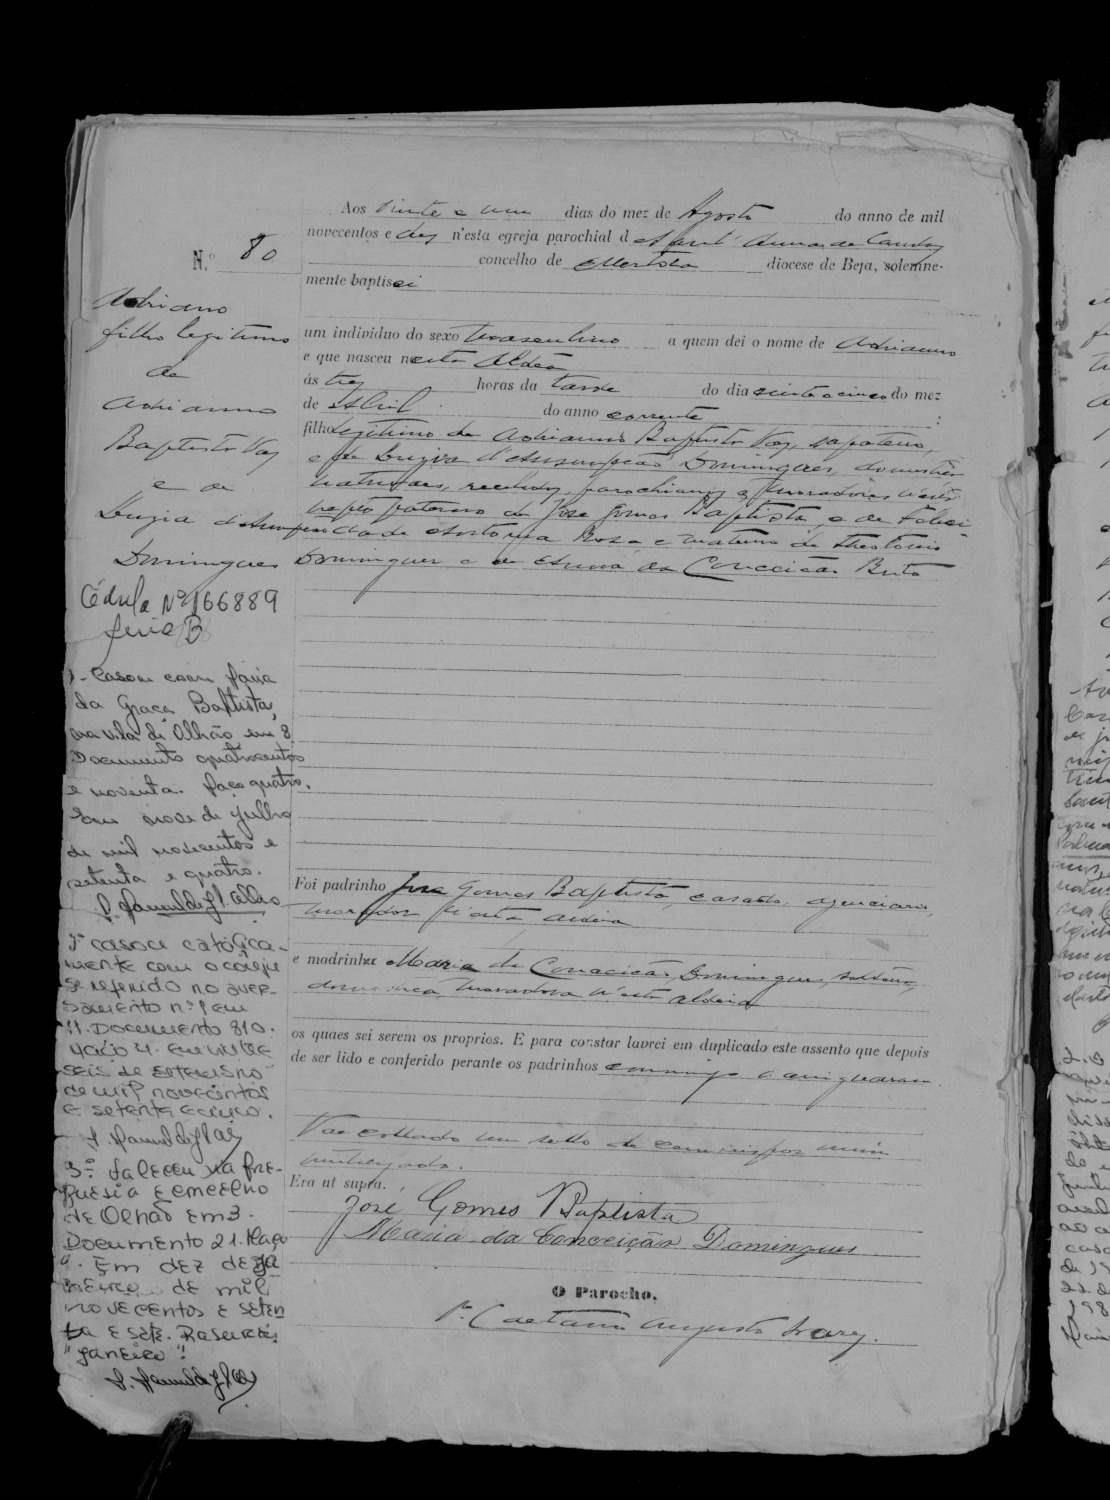 N.º 80
Adriano
filho legitimo
de
Adrianno
Baptista Vaz
e de
Luzia d'Assumpção
Domingues
Cédula Nº 166889
serie B
1- Casou com Maria
da Graça Baptista,
na vila de Olhão em 8.
Documento quatrocentos
e noventa. Maço quatro.
Em nove de Julho
de mil novecentos e
setenta e quatro.
2º casou católica-
mente com o cônjuge
referido no aver-
bamento nº 1 em
11. Documento 810.
Maço 4. Em vinte
seis de setembro
de mil novecentos
e setenta e cinco.
3º: Faleceu na fre-
guesia e concelho
de Olhão em 3.
Documento 21. Maço
Em dez de ja
neiro de mil
novecentos e seten
ta e sete. Rasurei:
"janeiro".
Aos vinte e um dias do mez de Agosto do anno de mil
novecentos e dez n'esta egreja parochial de Sant'Anna de Cambas
concelho de Mertola diocese de Beja, solemne-
mente baptisei
um individuo do sexo masculino a quem dei o nome de Adrianno
e que nasceu n'esta Aldêa
ás trez horas da tarde do dia vinte e cinco do mez
de Abril do anno corrente :
filho legitimo de Adrianno Baptista Vaz, sapateiro,
e de Luzia d'Assumpção Domingues, domestica
naturaes, recebidos, parochianos e moradores n'esta
neto paterno de José Gomes Baptista, e de Felici
dade Antonia Rosa e materno de Theotonio
Domingues e de Anna da Conceição Brito
Foi padrinho José Gomes Baptista, casado,
morador n'esta aldeia
e madrinha Maria da Conceição Domingues, solteira,
domestica, moradora n'esta aldeia
os quaes sei serem os proprios. E para constar lavrei em duplicado este assento que depois
de ser lido e conferido perante os padrinhos commigo o assignaram.
Vae collado um sello de cem reis por mim
inutilizado.
Era ut supra.
José Gomes Baptista
Maria da Conceição Domingues
O Parocho,
P.e Caetano Augusto